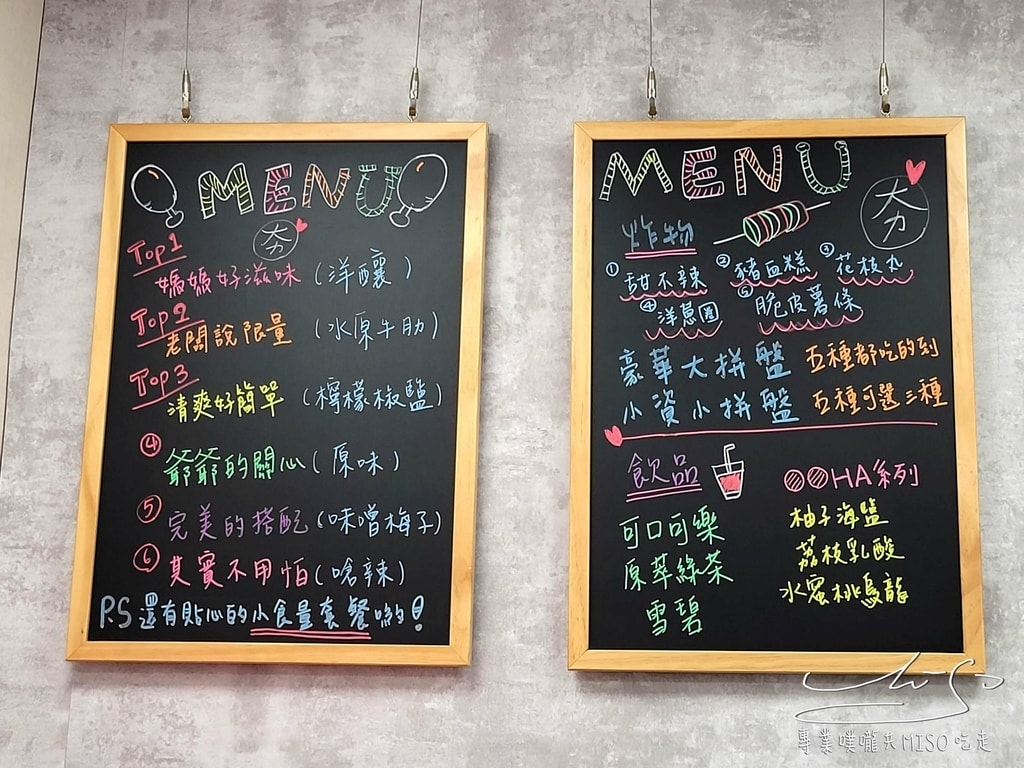 MENU
夯
Top1
媽媽好滋味(洋釀)
Top2
老闆說限量(水原牛肋)
Top3
清爽好簡單(檸檬椒鹽)
④爺爺的關心(原味)
⑤完美的搭配(味噌梅子)
⑥其實不用怕(嗆辣)
P.S還有貼心的小食量套餐喲!
MENU
夯
炸物
①甜不辣 ②豬血糕 ③花枝丸
④洋蔥圈 ⑤脆皮薯條
豪華大拼盤 五種都吃的到
小資小拼盤 五種可選三種
飲品
可口可樂
原萃綠茶
雪碧
HA系列
柚子海鹽
荔枝乳酸
水蜜桃烏龍
專業噗嚨共MISO吃走